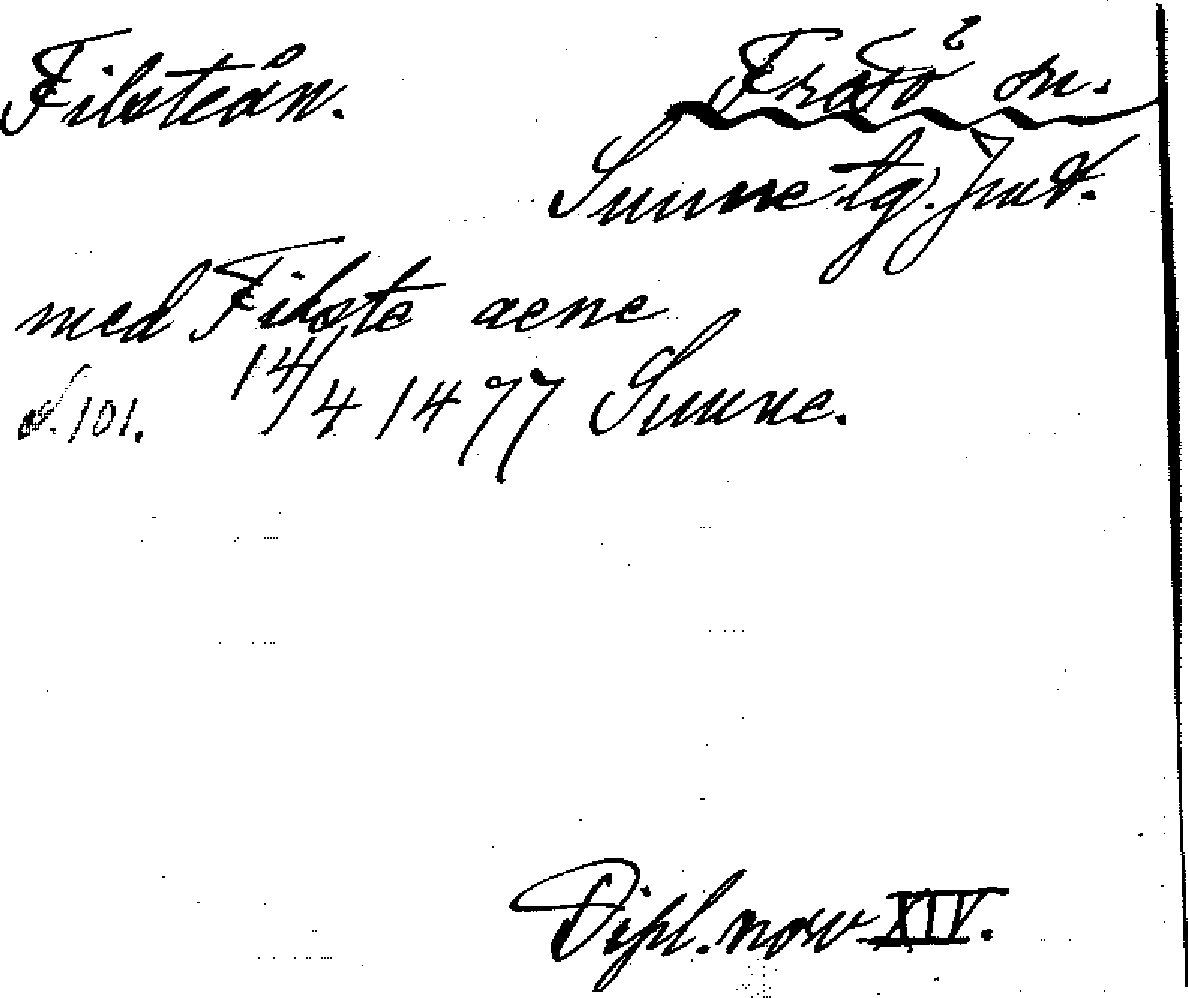 Filsteån.
Frösö sn.
Sunne tg. Jmt.
med Filste aene
s. 101. 14/4 1477 Sunne.
Dipl. norv XIV.